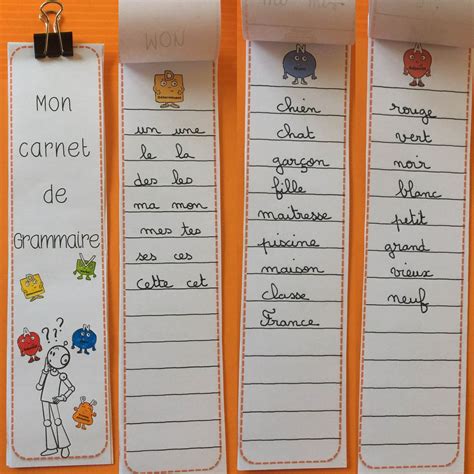 Mon
carnet
de
Grammaire
???
MON
un une
le la
des les
ma mon
mes tes
ses ces
cette cet
N
chien
chat
garçon
fille
maitresse
piscine
maison
classe
France
rouge
vert
noir
blanc
petit
grand
vieux
neuf